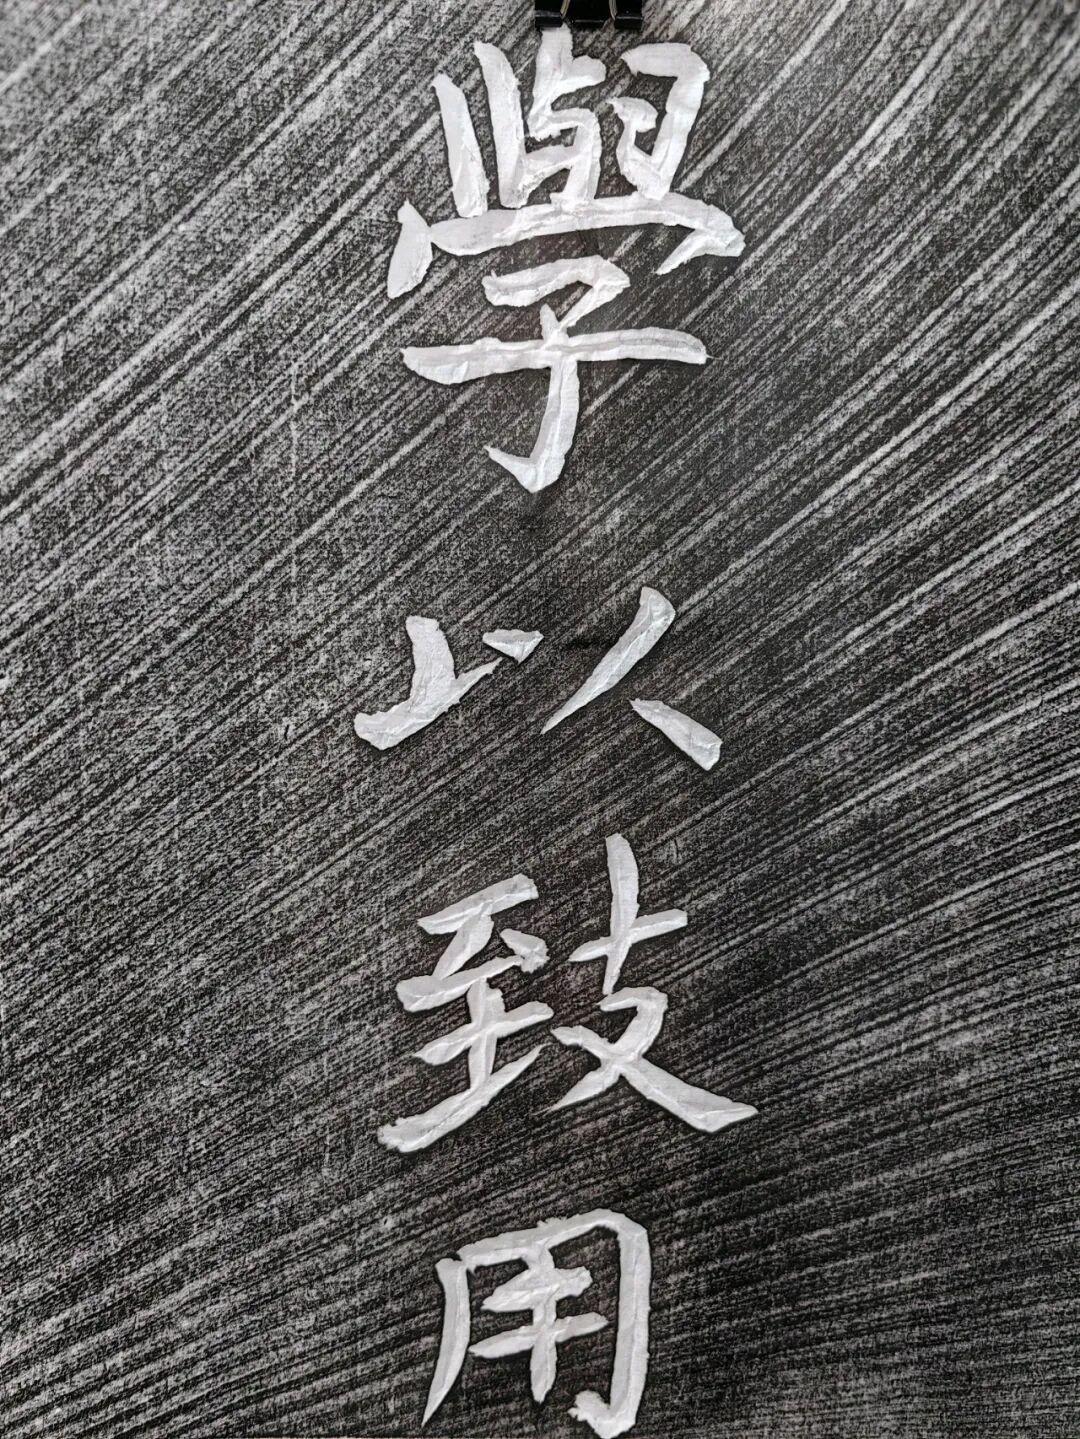 學以致用